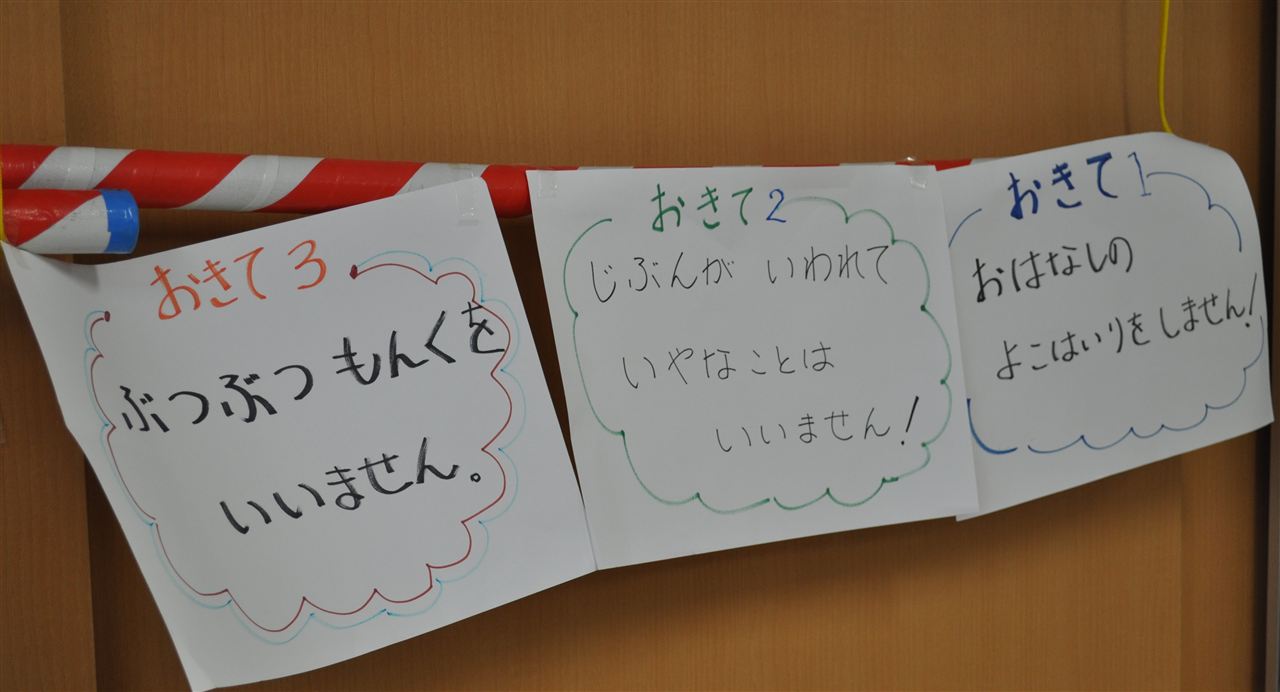 おきて3
ぶつぶつもんくを
いいません。
おきて2
じぶんが いわれて
いやなことは
いいません!
おきて1
おはなしの
よこはいりをしません!